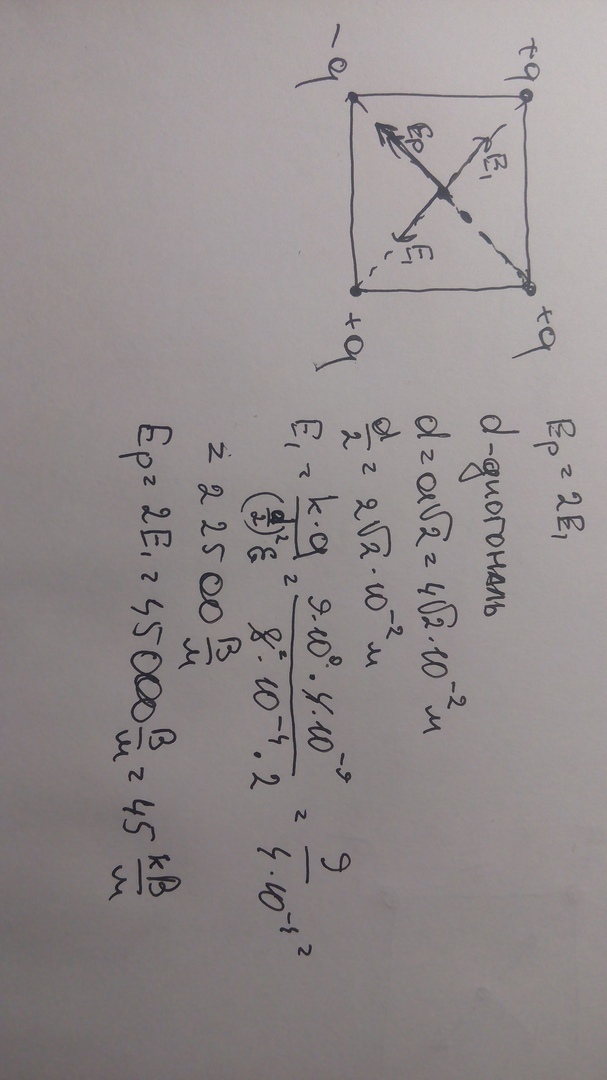 +q
+q
E₁
Eр
E₁
-q
+q
Eр = 2E₁
d - диогональ
d = a√2 = 4√2·10⁻² м
d/2 = 2√2·10⁻² м
E₁ = k·q/((d/2)²ε) = 9·10⁹·4·10⁻⁹/(8·10⁻⁴·2) = 9/(4·10⁻⁴) =
= 22500 В/м
Eр = 2E₁ = 45000 В/м = 45 кВ/м